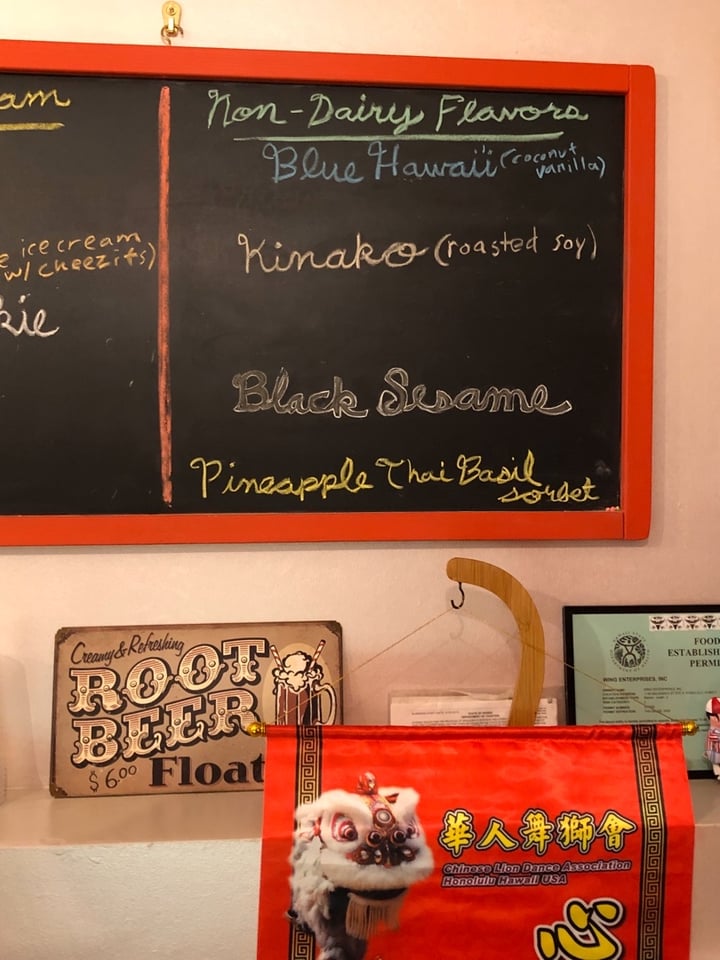 am
e ice cream
w/ cheezits)
kie
Non-Dairy Flavors
Blue Hawaii (coconut
vanilla)
Kinako (roasted soy)
Black Sesame
Pineapple Thai Basil
sorbet
Creamy & Refreshing
ROOT
BEER
$6.00 Float
FOOD
ESTABLISH
PERMI
WING ENTERPRISES, INC
華人舞獅會
Chinese Lion Dance Association
Honolulu Hawaii USA
心